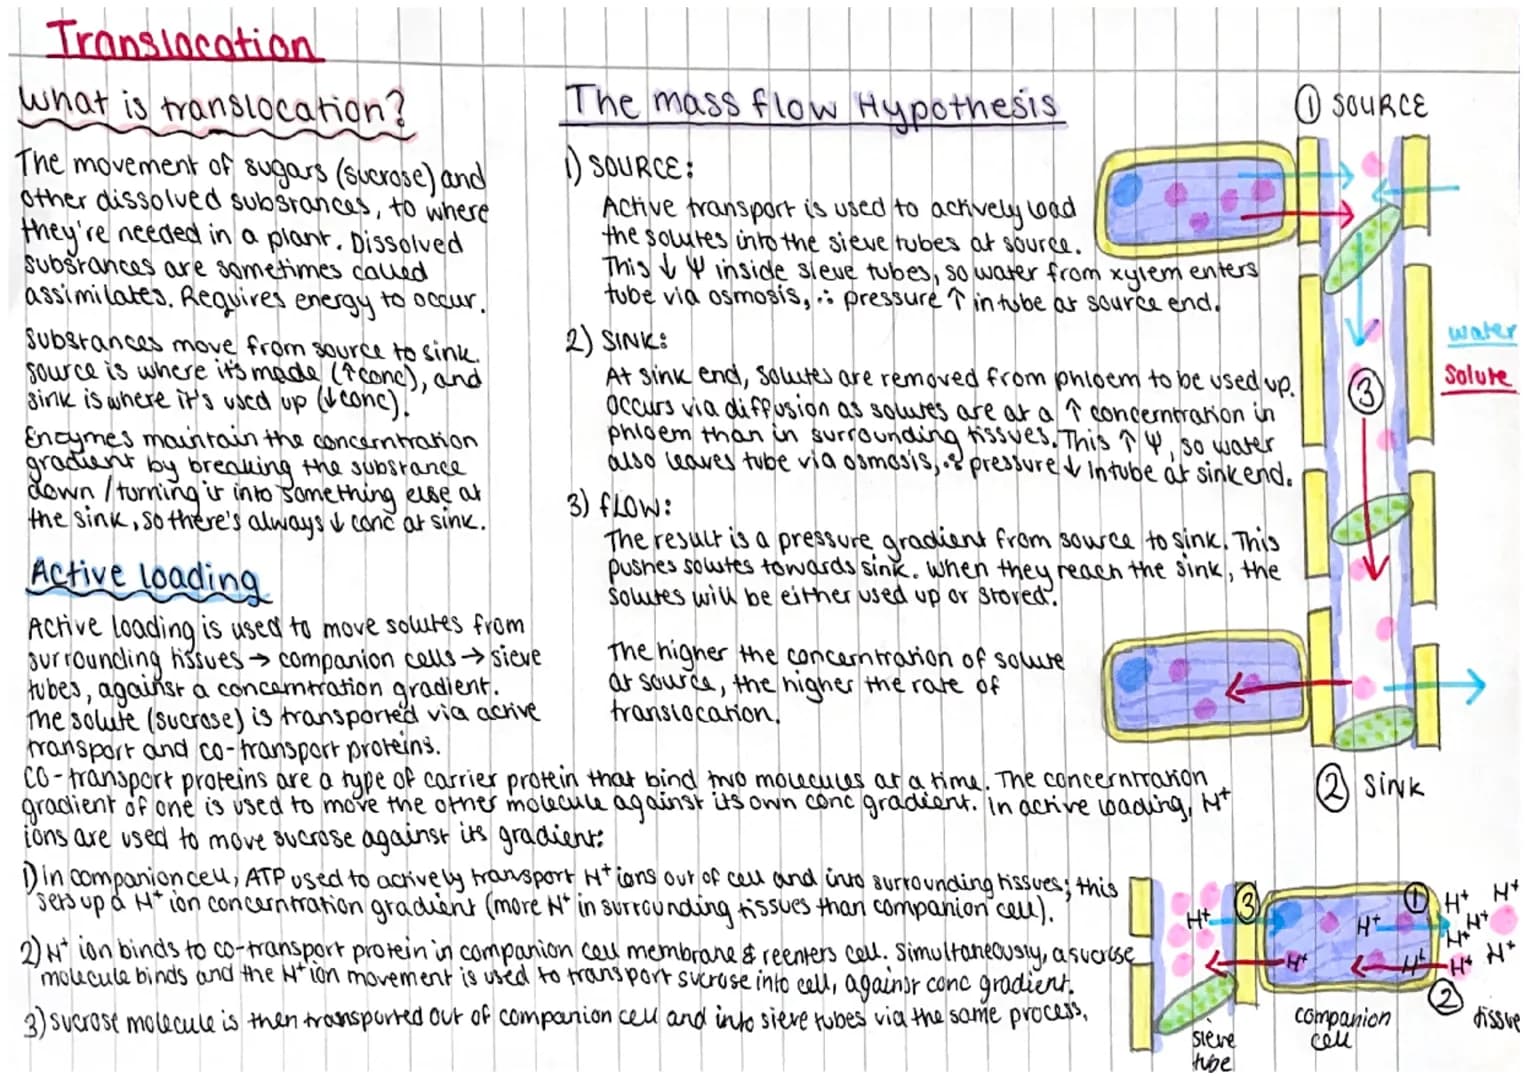 Translocation
What is translocation?
The movement of sugars (sucrose) and
other dissolved substances, to where
they're needed in a plant. Dissolved
substances are sometimes called
assimilates. Requires energy to occur.
Substances move from source to sink.
Source is where it's made (↑conc), and
sink is where it's used up (↓conc).
Enzymes maintain the concerntration
gradient by breaking the substance
down / turning it into something else at
the sink, so there's always ↓ conc at sink.
Active loading
Active loading is used to move solutes from
surrounding tissues → companion cells → sieve
tubes, against a concerntration gradient.
The solute (sucrose) is transported via active
transport and co-transport proteins.
CO-transport proteins are a type of carrier protein that bind two molecules at a time. The concerntration
gradient of one is used to move the other molecule against its own conc gradient. In active loading, H⁺
ions are used to move sucrose against its gradient:
1) In companion cell, ATP used to actively transport H⁺ ions out of cell and into surrounding tissues; this
sets up a H⁺ ion concerntration gradient (more H⁺ in surrounding tissues than companion cell).
2) H⁺ ion binds to co-transport protein in companion cell membrane & reenters cell. Simultaneously, a sucrose
molecule binds and the H⁺ ion movement is used to transport sucrose into cell, against conc gradient.
3) Sucrose molecule is then transported out of companion cell and into sieve tubes via the same process.
The mass flow Hypothesis
1) SOURCE:
Active transport is used to actively load
the solutes into the sieve tubes at source.
This ↓ Ψ inside sieve tubes, so water from xylem enters
tube via osmosis, ∴ pressure ↑ in tube at source end.
2) SINK:
At sink end, solutes are removed from phloem to be used up.
Occurs via diffusion as solutes are at a ↑ concerntration in
phloem than in surrounding tissues. This ↑ Ψ, so water
also leaves tube via osmosis, ∴ pressure ↓ in tube at sink end.
3) FLOW:
The result is a pressure gradient from source to sink. This
pushes solutes towards sink. When they reach the sink, the
solutes will be either used up or stored.
The higher the concerntration of solute
at source, the higher the rate of
translocation.
① SOURCE
water
Solute
③
② SINK
H⁺
③
H⁺
①
H⁺
H⁺
H⁺
H⁺
H⁺
H⁺
H⁺
H⁺
②
sieve
tube
companion
cell
tissue